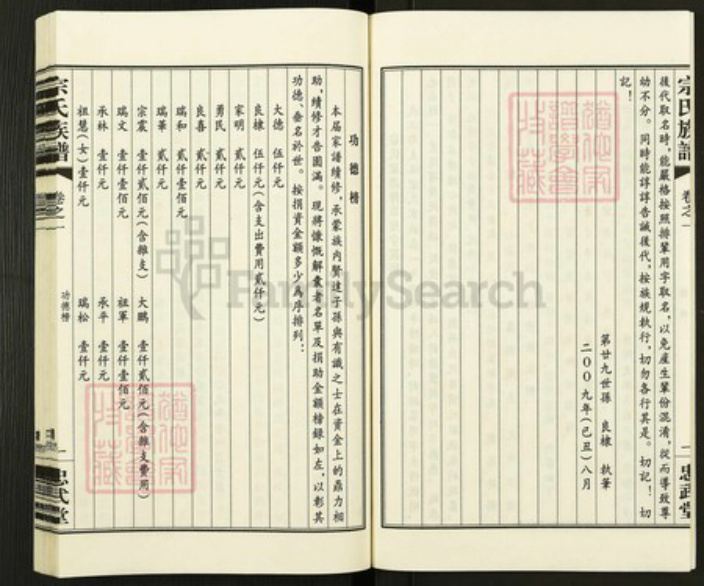 宗氏族譜
卷之一
忠武堂
後代取名時,能嚴格按照排輩用字取名,以免產生輩份混淆,從而導致尊
幼不分。同時能諄諄告誡後代,按族規執行,切勿各行其是。切記!切
記!
第廿九世孫 良棣 執筆
二00九年(己丑)八月
功德榜
本届家譜續修,承蒙族内賢達子孫與有識之士在資金上的鼎力相
助,續修才告圓滿。現將慷慨解囊者名單及捐助金額榜録如左,以彰其
功德、垂名於世。按捐資金額多少爲序排列:
大德 伍仟元
良棣 伍仟元(含支出費用貳仟元)
家明 貳仟元
勇民 貳仟元
良喜 貳仟元
瑞和 貳仟壹佰元
瑞華 貳仟元
宗震 壹仟貳佰元(含雜支) 大鵬 壹仟貳佰元(含雜支費用)
瑞文 壹仟壹佰元 祖軍 壹仟壹佰元
承林 壹仟元 承平 壹仟元
祖慧(女)壹仟元 瑞松 壹仟元
宗氏族譜
卷之一
功德榜
忠武堂
FamilySearch